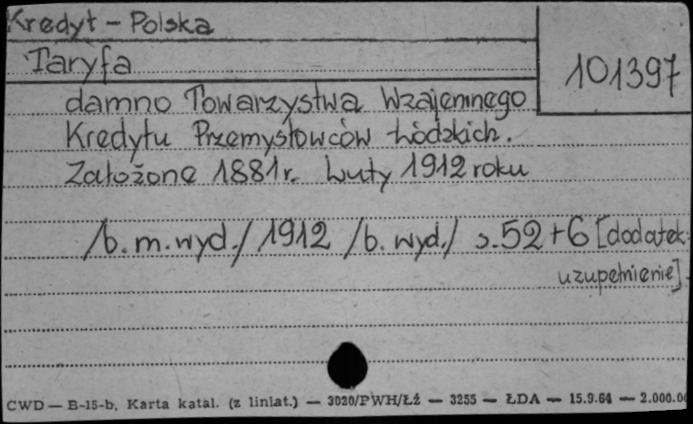 Kredyt - Polska
101397
Taryfa
damno Towarzystwa Wzajemnego
Kredytu Przemysłowców Łódzkich.
Założone 1881 r. Luty 1912 roku
/b. m. wyd./ 1912 /b. wyd./ s. 52 + 6 [dodatek:
uzupełnienie]
CWD — B-15-b, Karta katal. (z liniat.) — 3020/PWH/Łź — 3255 — ŁDA — 15.9.64 — 2.000.00